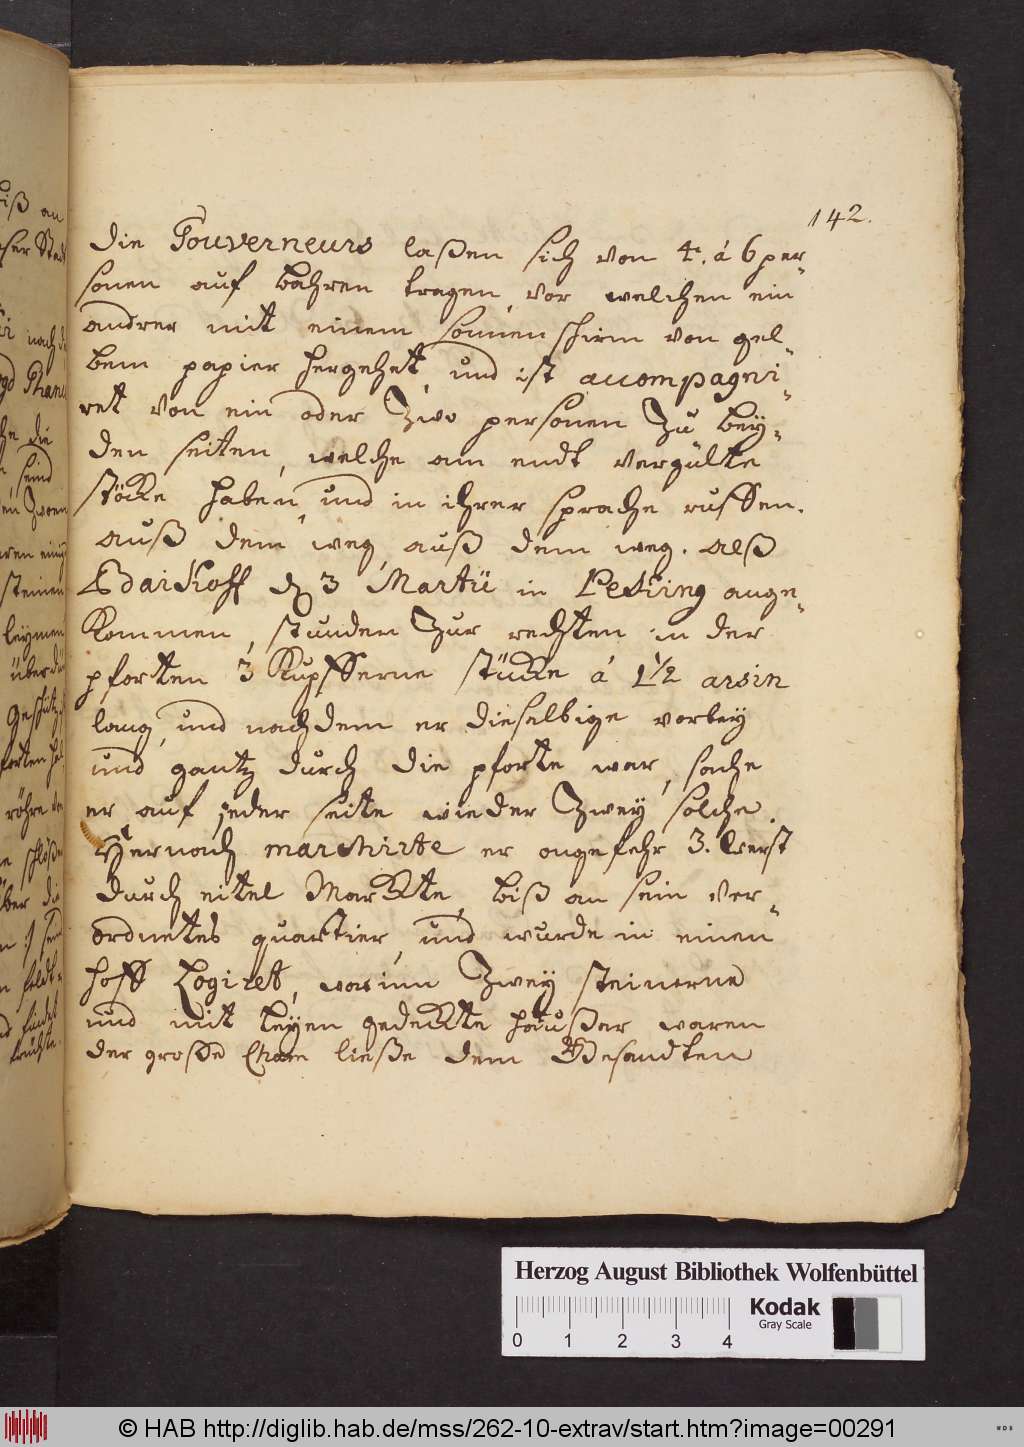 142.
die Gouverneurs laßen sich von 4. á 6 per-
sonen auf bahren tragen, vor welchen ein
andrer mit einem sonnenschirm von gel-
bem papier hergehet, und ist accompagni-
ret von ein oder Zwo personen Zu bey-
den seiten, welche am endt vergülte
stöcke haben, und in ihrer sprache ruffen.
auß dem weg, auß dem weg. alß
Bdaikoff d 3 Martii in Peking ange-
kommen, stunden Zur rechten in der
pforten 3 Kupfferne stücke á 1½ arsin
lang, und nachdem er dieselbige vorbey
und gantz durch die pforte war, sahe
er auf jeder seite wieder Zwey solche.
Hernach marchirte er ongefehr 3. Werst
durch eitel Marckte, biß an sein ver-
ordnetes quartier, und wurde in einen
hoff Logiret, worinn Zwey steinerne
und mit leyen gedeckte häußer waren
der große Cham ließe dem Gesandten
Herzog August Bibliothek Wolfenbüttel
Kodak
Gray Scale
0 1 2 3 4
© HAB http://diglib.hab.de/mss/262-10-extrav/start.htm?image=00291